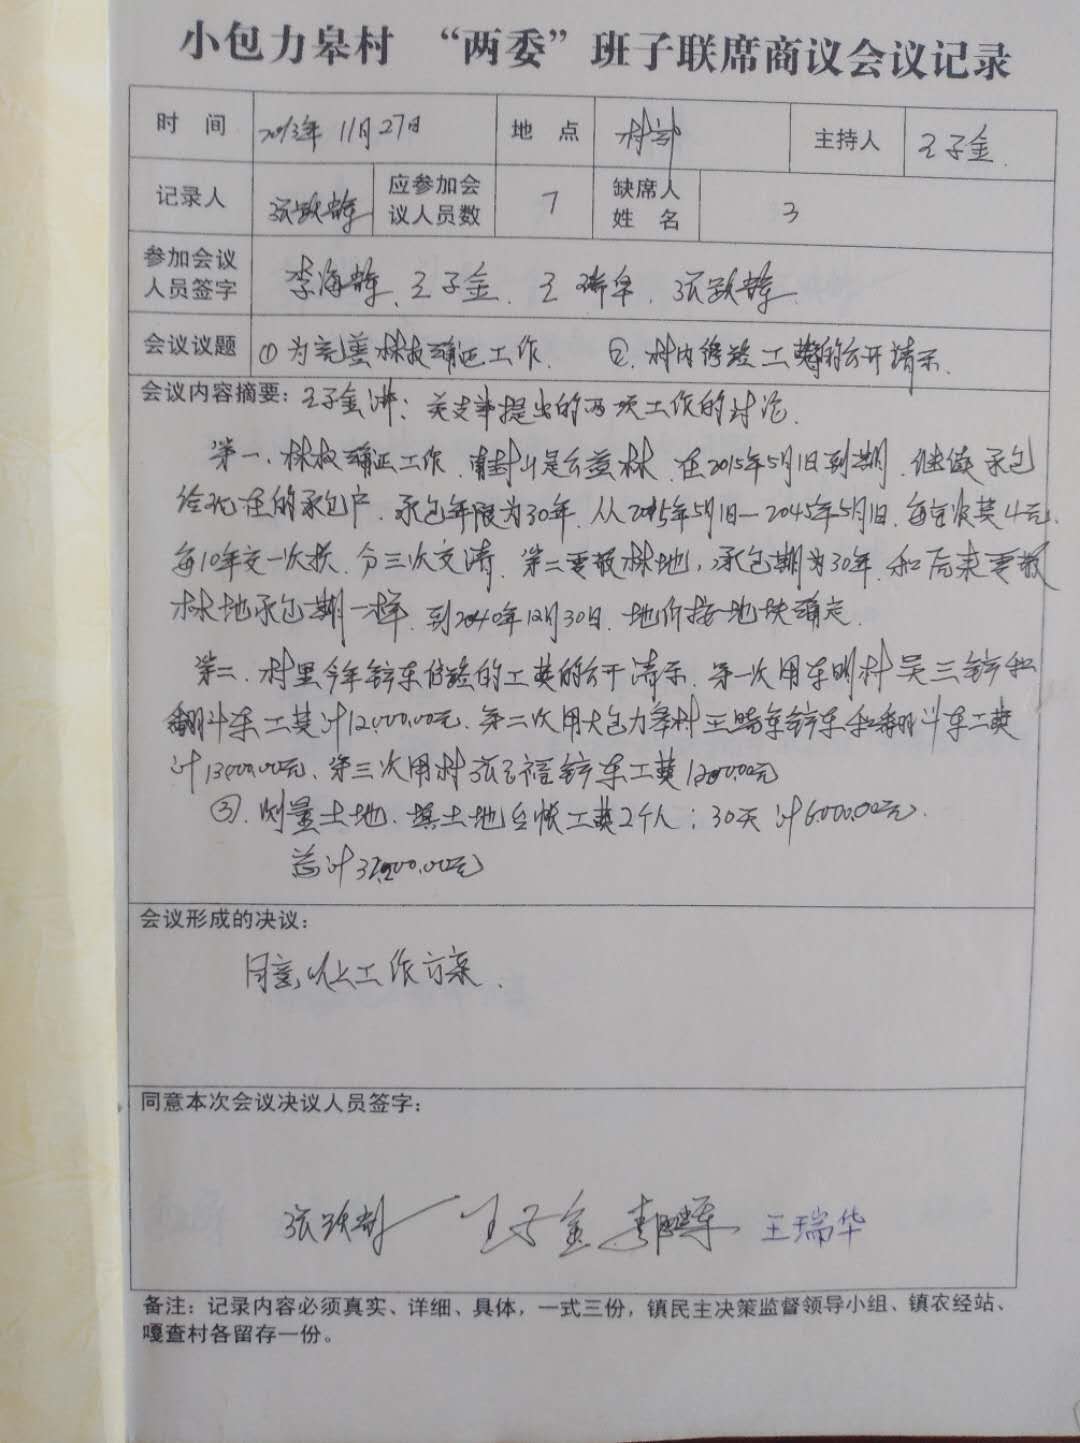 小包力皋村 “两委”班子联席商议会议记录
时 间 2013年11月27日 地 点 村部 主持人 王子金
记录人 张跃 应参加会议人员数 7 缺席人姓名 3
参加会议人员签字 李海、王子金、王瑞华、张跃
会议议题 ①为完善林权确证工作. ②.村内修路工费的公开请示.
会议内容摘要: 王子金讲: 关支书提出的两项工作的讨论.
第一、林权确证工作、封山是公益林、在2015年5月1日到期、继续承包
给现在的承包户、承包年限为30年、从2015年5月1日—2045年5月1日、每亩收费4元、
每10年交一次款、分三次交清、第二 林地、承包期为30年、和后来
林地承包期一样、到2040年12月30日、地价按地块确定.
第二、村里今年铲车修路的工费的公开请示、第一次用东明村吴三铲车和
翻斗车工费计12000.00元、第二次用大包力皋村王 铲车和翻斗车工费
计13000.00元、第三次用村张 铲车工费1200.00元
③.测量土地、填土地台帐工费2个人: 30天计6000.00元.
总计32200.00元
会议形成的决议:
同意以上工作方案.
同意本次会议决议人员签字:
张跃 王子金 李海 王瑞华
备注: 记录内容必须真实、详细、具体,一式三份,镇民主决策监督领导小组、镇农经站、
嘎查村各留存一份。